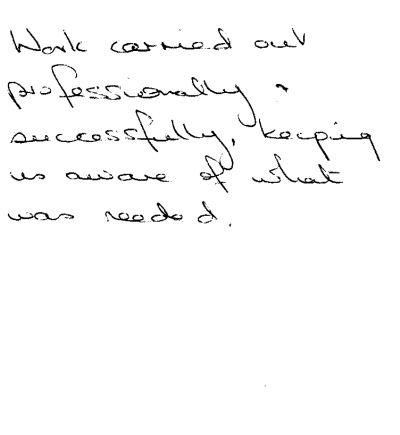 Work carried out
professionally +
successfully, keeping
us aware of what
was needed.